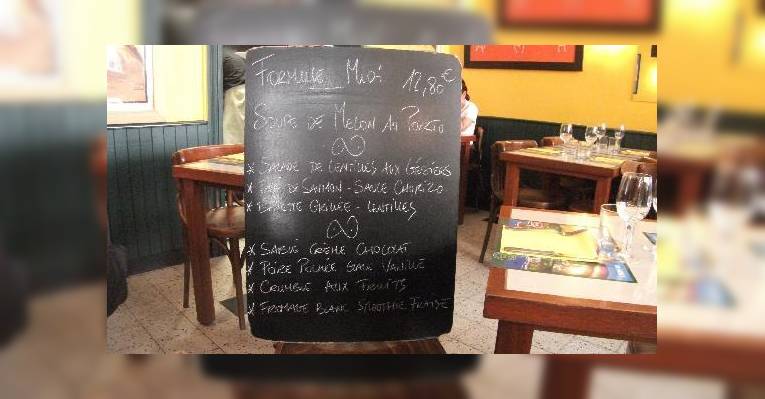 FORMULE MIDI
12,80€
SOUPE DE MELON AU PORTO
* SALADE DE LENTILLES AUX GÉSIERS
* PAVÉ DE SAUMON - SAUCE CHORIZO
* BAVETTE GRILLÉE - LENTILLES
* SABLÉ CRÈME CHOCOLAT
* POIRE POCHÉE GLACE VANILLE
* CRUMBLE AUX FRUITS
* FROMAGE BLANC SMOOTHIE FRAISE